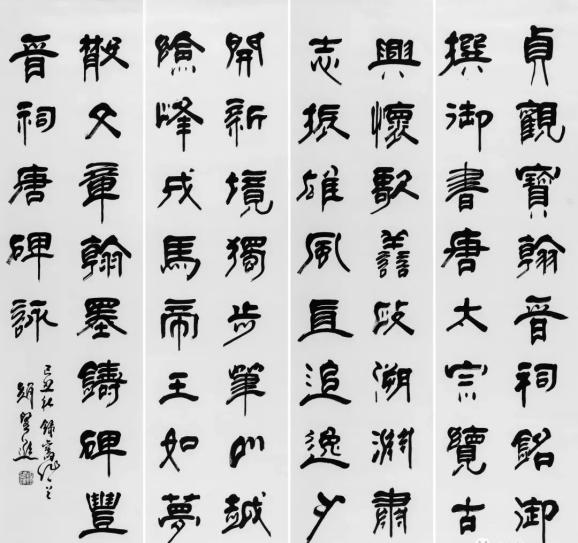 貞觀寶翰晉祠銘御
撰御書唐太宗覽古
興懷歌譱政溯淵肅
志振雄風直追逸少
開新境獨步筆山越
險峰戎馬帝王如夢
散文章翰墨鑄碑豐
晉祠唐碑詠
己丑秋錄寓
趙望進